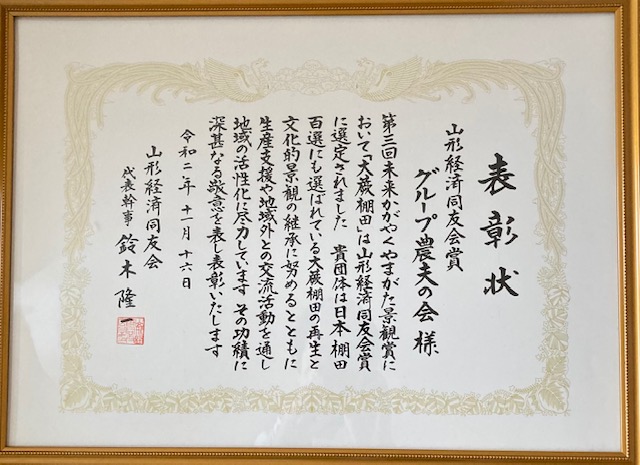 表彰状
山形経済同友会賞
グループ農夫の会 様
第三回未来かがやくやまがた景観賞に
おいて「大蕨棚田」は山形経済同友会賞
に選定されました 貴団体は日本棚田
百選にも選ばれている大蕨棚田の再生と
文化的景観の継承に努めるとともに
生産支援や地域外との交流活動を通し
地域の活性化に尽力しています その功績に
深甚なる敬意を表し表彰いたします
令和二年 十一月 十六日
山形経済同友会
代表幹事 鈴木隆一